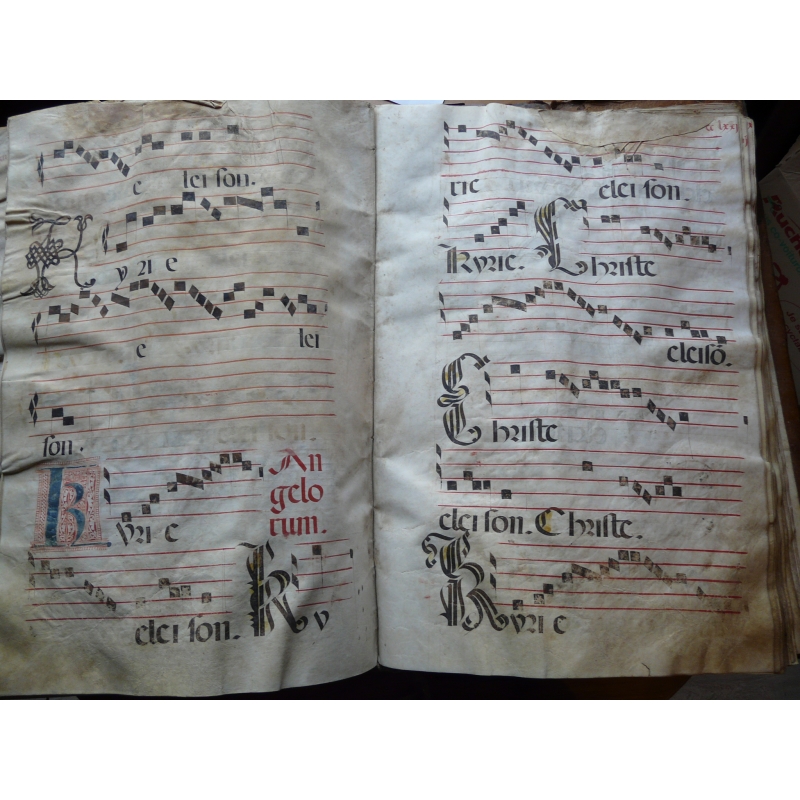 e lei son.
Kyri e
e lei
son.
Kyri e
An
gelo
rum.
elei son. Ky
rie elei son.
Kyrie. Christe
eleisō.
Christe
elei son. Christe.
Kyri e